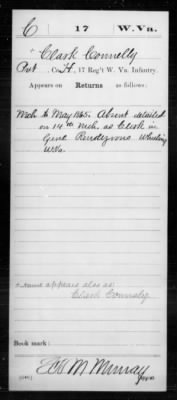 C 17 W. Va.
Clark Connelly
Pvt., Co. H, 17 Reg't W. Va. Infantry.
Appears on Returns as follows:
Mch to May 1865. Absent detailed
on 14th Mch. as Clerk in
Genl Rendezvous Wheeling
W.Va.
* Name appears also as
Clark Connely
Book mark:
M. Murray
Copyist.